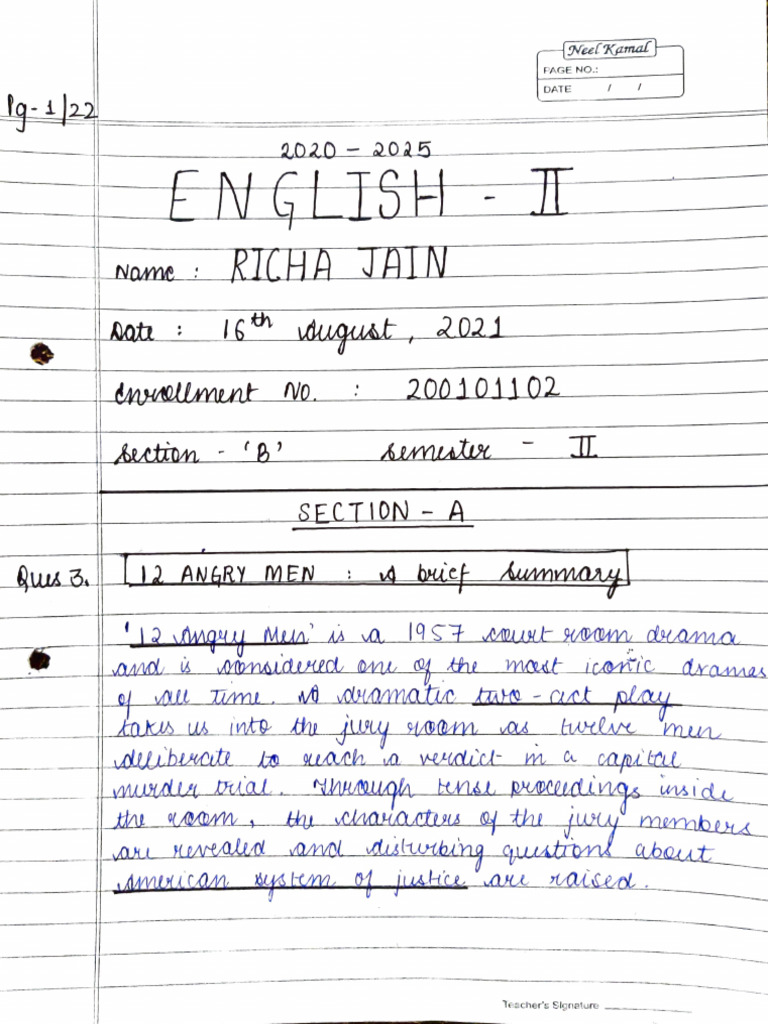 Neel Kamal
PAGE NO.:
DATE / /
Pg-1/22
2020 - 2025
ENGLISH - II
Name : RICHA JAIN
Date : 16th August, 2021
Enrollment No. : 200101102
Section - 'B' Semester - II
SECTION - A
Ques 3. 12 ANGRY MEN : A brief Summary
'12 Angry Men' is a 1957 court room drama
and is considered one of the most iconic dramas
of all time. A dramatic two-act play
takes us into the jury room as twelve men
deliberate to reach a verdict in a capital
murder trial. Through tense proceedings inside
the room, the characters of the jury members
are revealed and disturbing questions about
American system of justice are raised.
Teacher's Signature